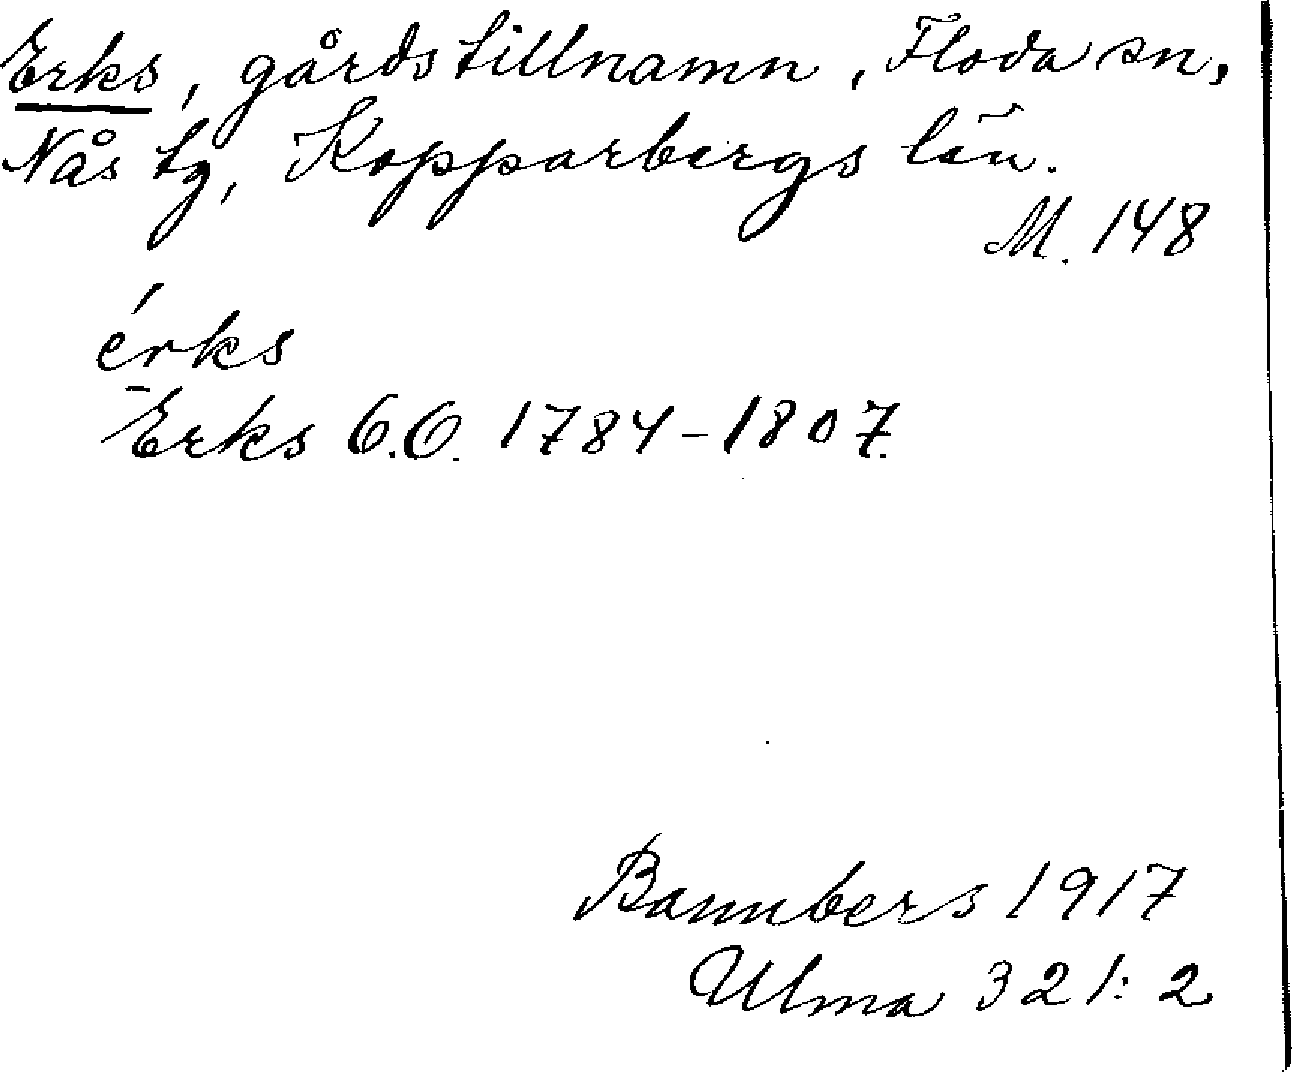 Erks, gårdstillnamn, Floda sn,
Nås tg, Kopparbergs län.
M. 148
érks
Erks C.O. 1784-1807.
Bannbers 1917
Ulma 321:2